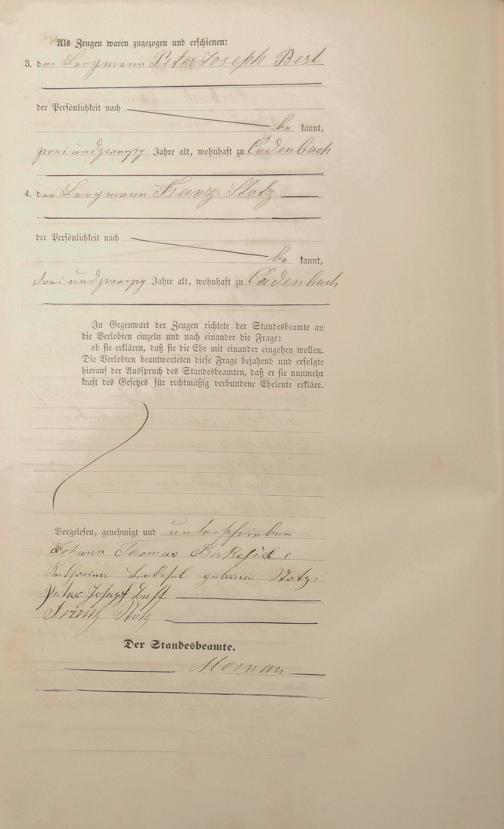 Als Zeugen waren zugezogen und erschienen:
3. der Bergmann Peter Joseph Best
der Persönlichkeit nach
be kannt,
zweiundzwanzig Jahre alt, wohnhaft zu Cadenbach
4. der Bergmann Franz Stotz
der Persönlichkeit nach
be kannt,
dreiundzwanzig Jahre alt, wohnhaft zu Cadenbach
In Gegenwart der Zeugen richtete der Standesbeamte an
die Verlobten einzeln und nach einander die Frage:
ob sie erklären, daß sie die Ehe mit einander eingehen wollen.
Die Verlobten beantworteten diese Frage bejahend und erfolgte
hierauf der Ausspruch des Standesbeamten, daß er sie nunmehr
kraft des Gesetzes für rechtmäßig verbundene Eheleute erkläre.
Vorgelesen, genehmigt und unterschrieben
Johann Thomas
Katharina geborene Stotz.
Peter Josef Best
Franz Stotz
Der Standesbeamte.